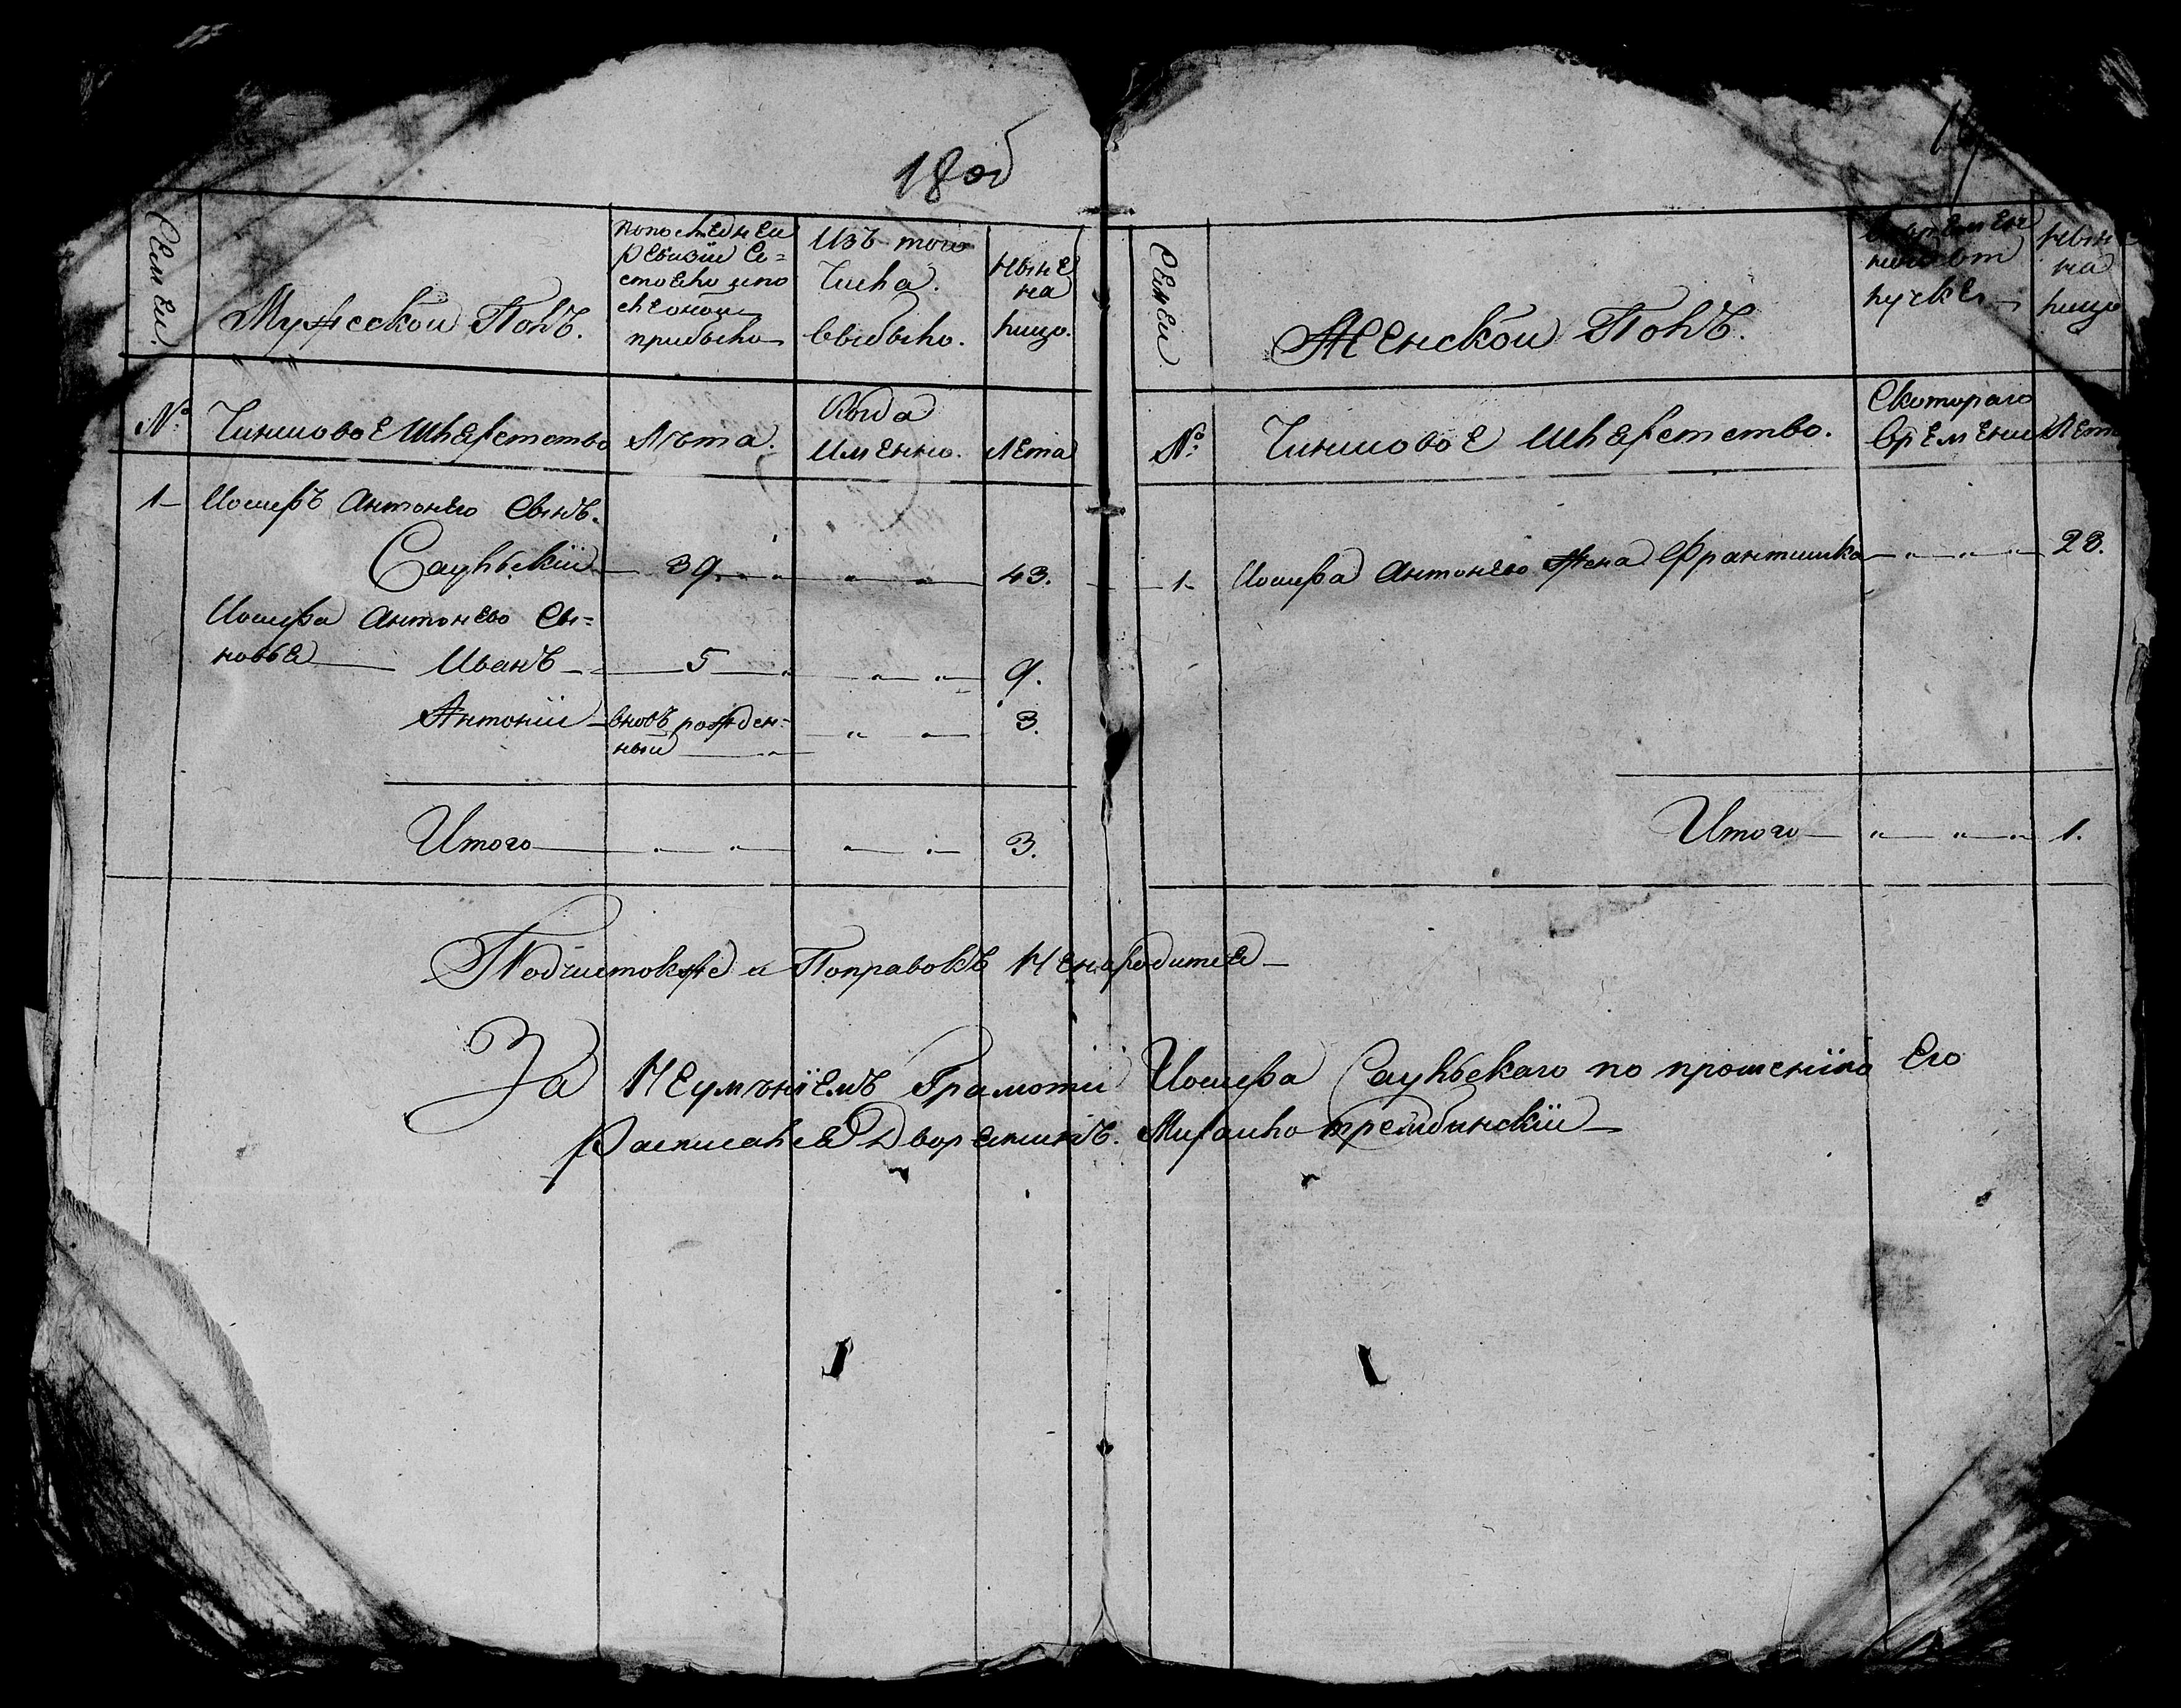 Семеи.
Мужескои Полъ.
попоследнеи
ревизіи Со=
стояло ипо
слеонои
прибыло
Изъ того
Числа.
выбыло.
Ныне
на
лицо.
№
Чиншовое Шляхетство
Лѣта.
Когда
Именно.
Лета
1 Иосифъ Антонего Сынъ.
Саульскій 39. 43.
Иосифа Антонего Сы=
новья Иванъ 5 9.
Антоній вновь рожден= 3.
ныи
Итого 3.
Семеи
Женскои Полъ.
пуске
ныне
на
лицо
№
Чиншовое Шляхетство.
Скотораго
времени
Лета
1. Иосифа Антонего Жена Франтишка 28.
Итого 1.
Подчистокже и Поправокъ Ненаходится
За Неумѣніемъ Грамоти Иосифа Саульскаго по прошенію Его
Расписался Дворянинъ. Михаило Трембинскій